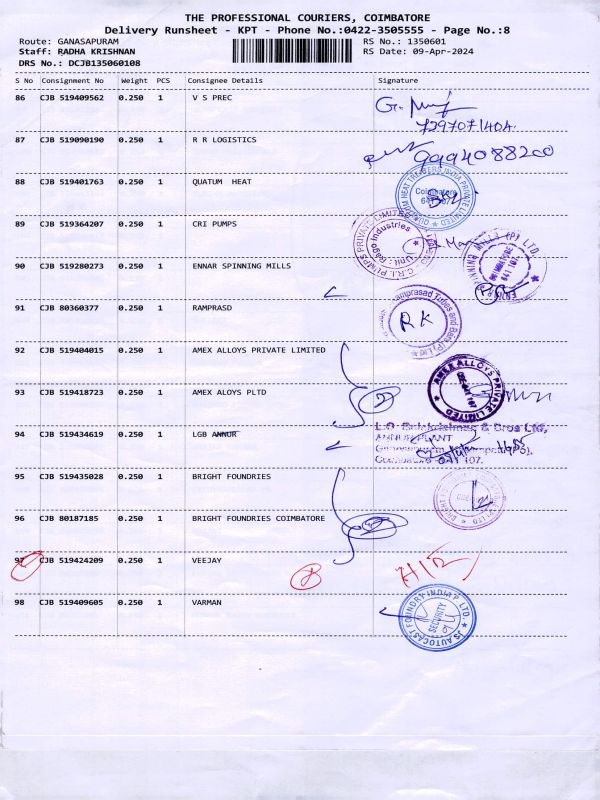 THE PROFESSIONAL COURIERS, COIMBATORE
Delivery Runsheet - KPT - Phone No.:0422-3505555 - Page No.:8
Route: GANASAPURAM RS No.: 1350601
Staff: RADHA KRISHNAN RS Date: 09-Apr-2024
DRS No.: DCJB135060108
S No Consignment No Weight PCS Consignee Details Signature
86 CJB 519409562 0.250 1 V S PREC
7397071404
87 CJB 519090190 0.250 1 R R LOGISTICS
9994088200
88 CJB 519401763 0.250 1 QUATUM HEAT
89 CJB 519364207 0.250 1 CRI PUMPS
90 CJB 519280273 0.250 1 ENNAR SPINNING MILLS
91 CJB 80360377 0.250 1 RAMPRASD
RK
92 CJB 519404015 0.250 1 AMEX ALLOYS PRIVATE LIMITED
AMEX ALLOYS PRIVATE LIMITED
93 CJB 519418723 0.250 1 AMEX ALOYS PLTD
94 CJB 519434619 0.250 1 LGB ANNUR
L.G. Balakrishnan & Bros Ltd,
ANNUR PLANT
95 CJB 519435028 0.250 1 BRIGHT FOUNDRIES
96 CJB 80187185 0.250 1 BRIGHT FOUNDRIES COIMBATORE
97 CJB 519424209 0.250 1 VEEJAY
98 CJB 519409605 0.250 1 VARMAN
JS AUTOCAST FOUNDRY INDIA P LTD.
SECURITY